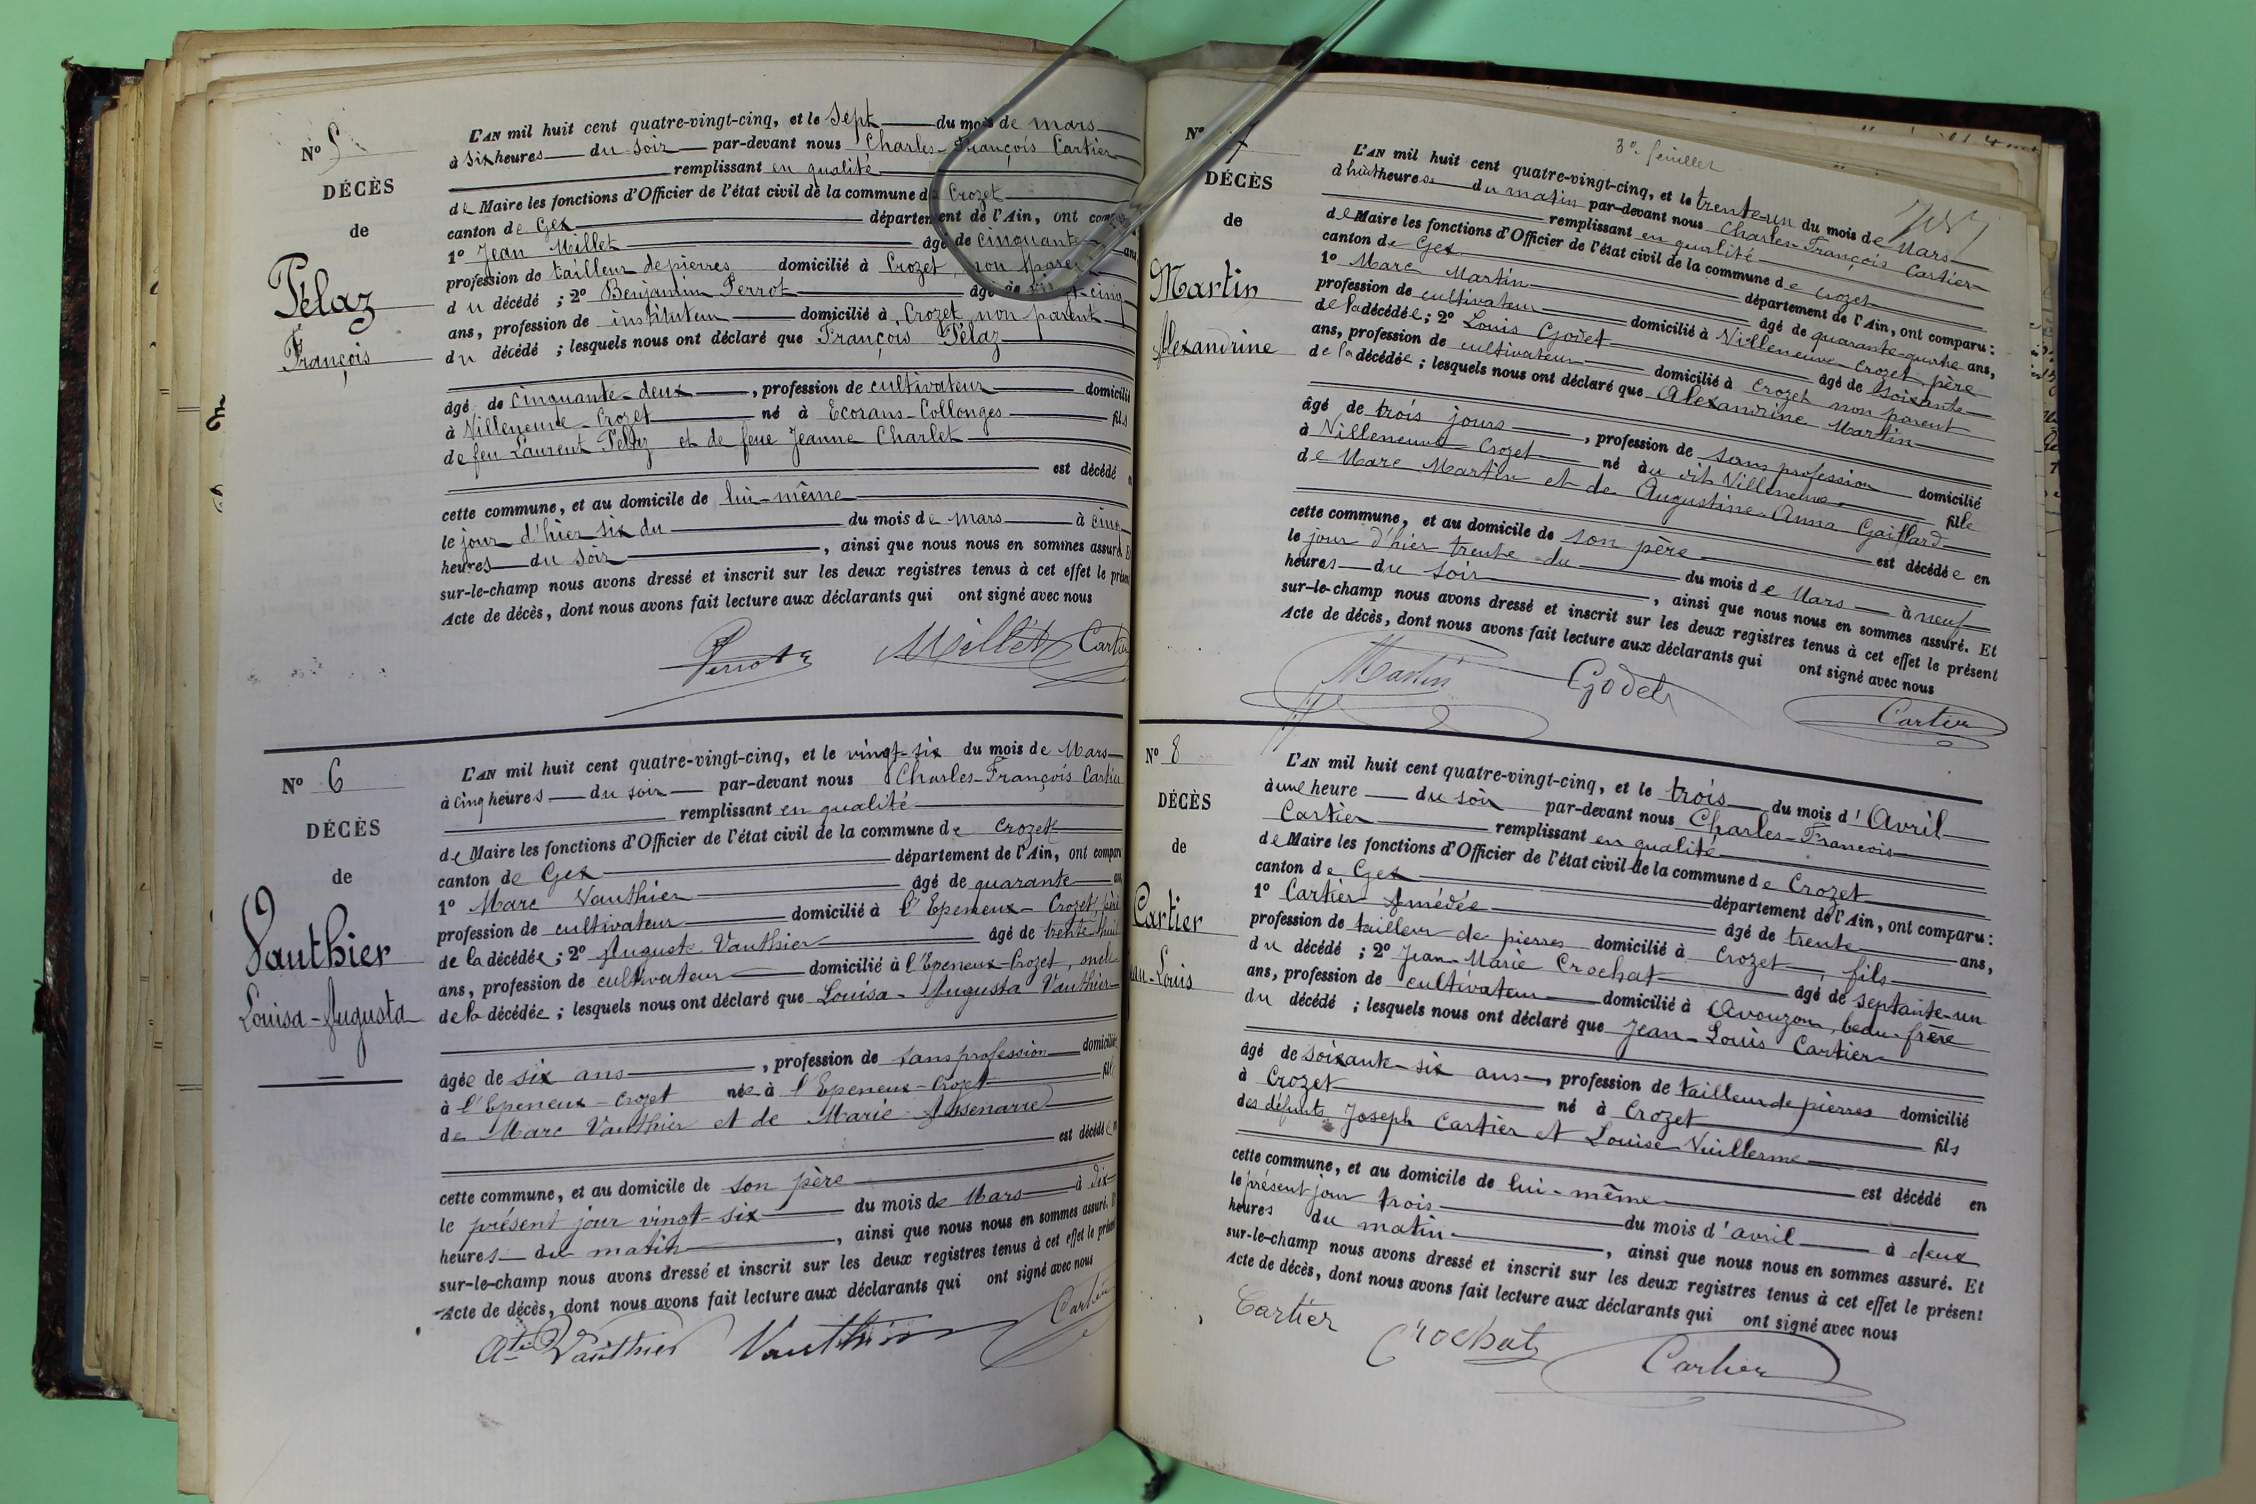 N° 5
DÉCÈS
de
Pélaz
François
L'AN mil huit cent quatre-vingt-cinq, et le Sept du mois de mars
à six heures du soir par-devant nous Charles-François Cartier
remplissant en qualité
de Maire les fonctions d'Officier de l'état civil de la commune de Crozet
canton de Gex département de l'Ain, ont
1° Jean Millet âgé de cinquante ans
profession de tailleur de pierres domicilié à Crozet, non
du décédé ; 2° Benjamin Perrot âgé de cinq
ans, profession de instituteur domicilié à Crozet non parent
du décédé ; lesquels nous ont déclaré que François Pélaz
âgé de cinquante-deux, profession de cultivateur domicilié
à Villeneuve-Crozet né à Ecorans-Collonges fils
de feu Laurent Pélaz et de feue Jeanne Charlet
est décédé
cette commune, et au domicile de lui-même
le jour d'hier six du du mois de mars à cinq
heures du soir, ainsi que nous nous en sommes assuré. Et
sur-le-champ nous avons dressé et inscrit sur les deux registres tenus à cet effet le présent
Acte de décès, dont nous avons fait lecture aux déclarants qui ont signé avec nous
Perrot Millet Cartier
N° 6
DÉCÈS
de
Vauthier
Louisa-Augusta
L'AN mil huit cent quatre-vingt-cinq, et le vingt-six du mois de Mars
à cinq heures du soir par-devant nous Charles-François Cartier
remplissant en qualité
de Maire les fonctions d'Officier de l'état civil de la commune de Crozet
canton de Gex département de l'Ain, ont comparu
1° Marc Vauthier âgé de quarante ans
profession de cultivateur domicilié à l'Epeneux-Crozet, père
de la décédée ; 2° Auguste Vauthier âgé de trente-huit
ans, profession de cultivateur domicilié à l'Epeneux-Crozet, oncle
de la décédée ; lesquels nous ont déclaré que Louisa-Augusta Vauthier
âgée de six ans, profession de sans profession domiciliée
à l'Epeneux-Crozet née à l'Epeneux-Crozet fille
de Marc Vauthier et de Marie
est décédée
cette commune, et au domicile de son père
le présent jour vingt-six du mois de Mars à dix
heures du matin, ainsi que nous nous en sommes assuré. Et
sur-le-champ nous avons dressé et inscrit sur les deux registres tenus à cet effet le présent
Acte de décès, dont nous avons fait lecture aux déclarants qui ont signé avec nous
Ate Vauthier Vauthier Cartier
3e feuillet
N° 7
DÉCÈS
de
Martin
Alexandrine
L'AN mil huit cent quatre-vingt-cinq, et le trente-un du mois de Mars
à huit heures du matin par-devant nous Charles-François Cartier
remplissant en qualité
de Maire les fonctions d'Officier de l'état civil de la commune de Crozet
canton de Gex département de l'Ain, ont comparu :
1° Marc Martin âgé de quarante-quatre ans,
profession de cultivateur domicilié à Villeneuve-Crozet, père
de la décédée ; 2° Louis Godet âgé de soixante
ans, profession de cultivateur domicilié à Crozet non parent
de la décédée ; lesquels nous ont déclaré que Alexandrine Martin
âgé de trois jours, profession de sans profession domicilié
à Villeneuve Crozet né au dit Villeneuve fille
de Marc Martin et de Augustine-Anna Gaillard
est décédée en
cette commune, et au domicile de son père
le jour d'hier trente du du mois de Mars à neuf
heures du soir, ainsi que nous nous en sommes assuré. Et
sur-le-champ nous avons dressé et inscrit sur les deux registres tenus à cet effet le présent
Acte de décès, dont nous avons fait lecture aux déclarants qui ont signé avec nous
Martin Godet Cartier
N° 8
DÉCÈS
de
Cartier
Jean-Louis
L'AN mil huit cent quatre-vingt-cinq, et le trois du mois d'Avril
à une heure du soir par-devant nous Charles-François
Cartier remplissant en qualité
de Maire les fonctions d'Officier de l'état civil de la commune de Crozet
canton de Gex département de l'Ain, ont comparu :
1° Cartier Amédée âgé de trente ans,
profession de tailleur de pierres domicilié à Crozet, fils
du décédé ; 2° Jean-Marie Crochat âgé de septante-un
ans, profession de cultivateur domicilié à Avouzon, beau-frère
du décédé ; lesquels nous ont déclaré que Jean-Louis Cartier
âgé de soixante-six ans, profession de tailleur de pierres domicilié
à Crozet né à Crozet fils
des défunts Joseph Cartier et Louise Vuillerme
est décédé en
cette commune, et au domicile de lui-même
le présent jour trois du mois d'avril à deux
heures du matin, ainsi que nous nous en sommes assuré. Et
sur-le-champ nous avons dressé et inscrit sur les deux registres tenus à cet effet le présent
Acte de décès, dont nous avons fait lecture aux déclarants qui ont signé avec nous
Cartier Crochat Cartier